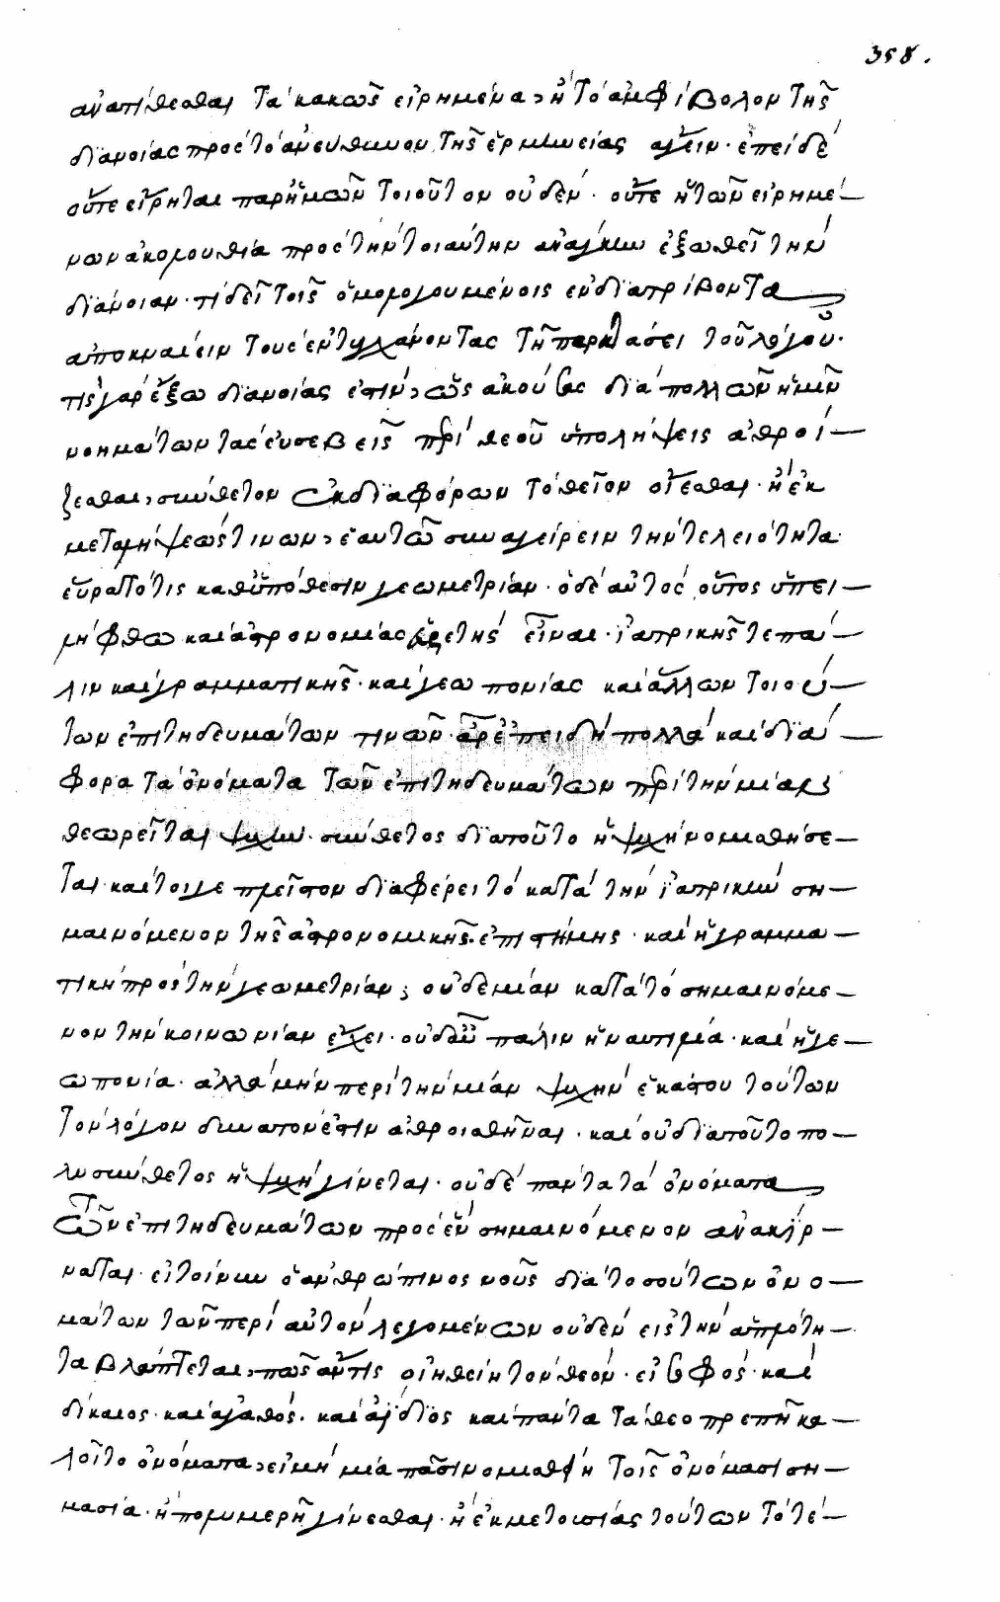 358.
ἀνατίθεσθαι τὰ κακῶς εἰρημένα, ἢ τὸ ἀμφίβολον τῆς
διανοίας πρὸς τὸ ἀνεύθυνον τῆς ἑρμηνείας ἄγειν. ἐπεὶ δὲ
οὔτε εἴρηται παρ' ἡμῶν τοιοῦτον οὐδὲν. οὔτε ἡ τῶν εἰρημέ-
νων ἀκολουθία πρὸς τὴν τοιαύτην ἀνάγκην ἐξωθεῖ τὴν
διάνοιαν. τί δεῖ τοῖς ὁμολογουμένοις ἐνδιατρίβοντα
ἀποκναίειν τοὺς ἐντυγχάνοντας τῇ παρκτάσει τοῦ λόγου.
τίς γὰρ ἔξω διανοίας ἐστὶν, ὡς ἀκούσας διὰ πολλῶν ἡμῖν
νοημάτων τὰς εὐσεβεῖς περὶ θεοῦ ὑπολήψεις ἀθροί-
ζεσθαι, σύνθετον ἐκ διαφόρων τὸ θεῖον οἴεσθαι. ἢ ἐκ
μεταλήψεώς τινων, ἑαυτῷ συναγείρειν τὴν τελειότητα.
εὕρατό τις καθ' ὑπόθεσιν γεωμετρίαν. ὁ δὲ αὐτὸς οὗτος ὑπει-
λήφθω καὶ ἀστρονομίας εὑρετὴς εἶναι. ἰατρικῆς τε πά-
λιν καὶ γραμματικῆς. καὶ γεωπονίας καὶ ἄλλων τοιού-
των ἐπιτηδευμάτων τινῶν. ἆρ' ἐπειδὴ πολλὰ καὶ διά-
φορα τὰ ὀνόματα τῶν ἐπιτηδευμάτων περὶ τὴν μίαν
θεωρεῖται ψυχὴν. σύνθετος διὰ τοῦτο ἡ ψυχὴ νομισθήσε-
ται. καίτοιγε πλεῖστον διαφέρει τὸ κατὰ τὴν ἰατρικὴν ση-
μαινόμενον τῆς ἀστρονομικῆς ἐπιστήμης. καὶ ἡ γραμμα-
τικὴ πρὸς τὴν γεωμετρίαν, οὐδεμίαν κατὰ τὸ σημαινόμε-
νον τὴν κοινωνίαν ἔχει. οὐδ' αὖ πάλιν ἡ ναυτιλία. καὶ ἡ γε-
ωπονία. ἀλλὰ μὴν περὶ τὴν μίαν ψυχὴν ἑκάστου τούτων
τὸν λόγον δυνατόν ἐστιν ἀθροισθῆναι. καὶ οὐ διὰ τοῦτο πο-
λυσύνθετος ἡ ψυχὴ γίνεται. οὐδὲ πάντα τὰ ὀνόματα
τῶν ἐπιτηδευμάτων πρὸς ἓν σημαινόμενον ἀνακίρ-
ναται. εἰ τοίνυν ὁ ἀνθρώπινος νοῦς διὰ τοσούτων ὀνο-
μάτων τῶν περὶ αὐτὸν λεγομένων οὐδὲν εἰς τὴν ἁπλότη-
τα βλάπτεται, πῶς ἄν τις οἰηθείη τὸν θεὸν. εἰ σοφὸς. καὶ
δίκαιος. καὶ ἀγαθὸς. καὶ ἀΐδιος καὶ πάντα τὰ θεοπρεπῆ κα-
λοῖτο ὀνόματα, εἰ μὴ μία πᾶσι νομισθῇ τοῖς ὀνόμασι ση-
μασία. ἢ πολυμερῆ γίνεσθαι. ἢ ἐκ μετουσίας τούτων τὸ τέ-